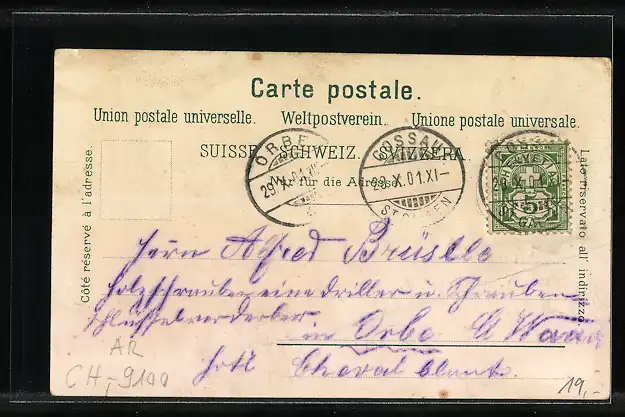 Carte postale.
Union postale universelle. Weltpostverein. Unione postale universale.
SUISSE. SCHWEIZ. SVIZZERA.
Nur für die Adresse.
Côté réservé à l'adresse.
Lato riservato all' indirizzo.
ORBE
29.X.01.
GOSSAU
28.X.01.XI-
ST. GALLEN
HELVETIA
5
Herrn Alfred
u. Schrauben
in Orbe
Hotel Cheval blanc.
AR
CH-9100
19,-